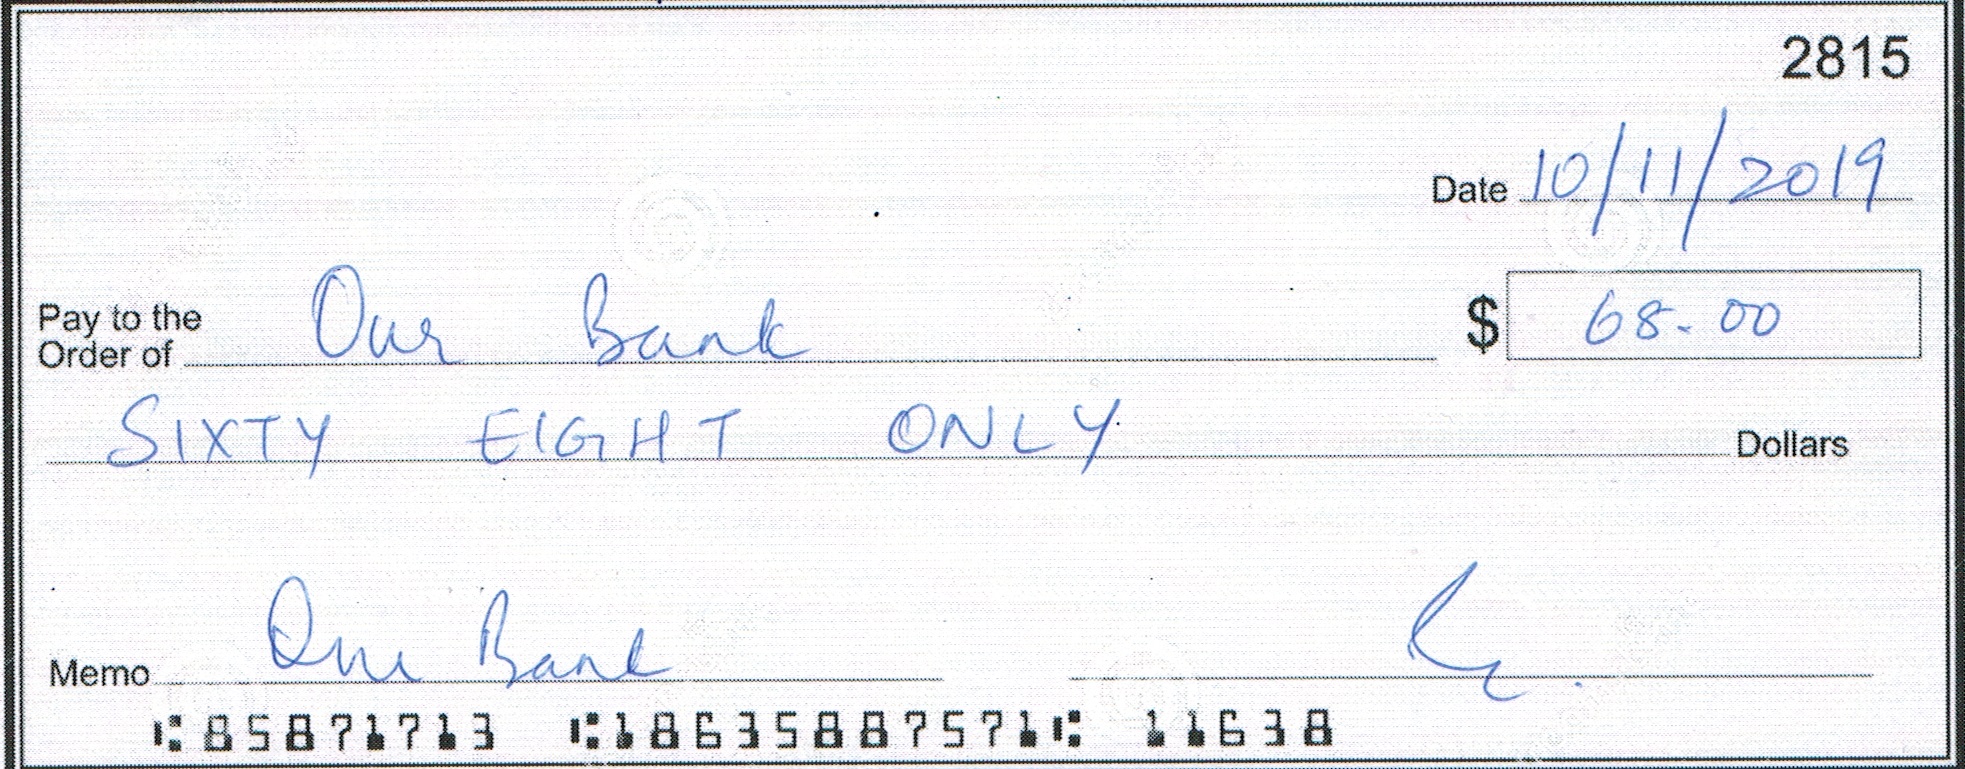 2815
Date 10/11/2019
Pay to the
Order of Our Bank $ 68.00
SIXTY EIGHT ONLY Dollars
Memo Our Bank
⑆85871713 ⑆18635887571⑆ 11638